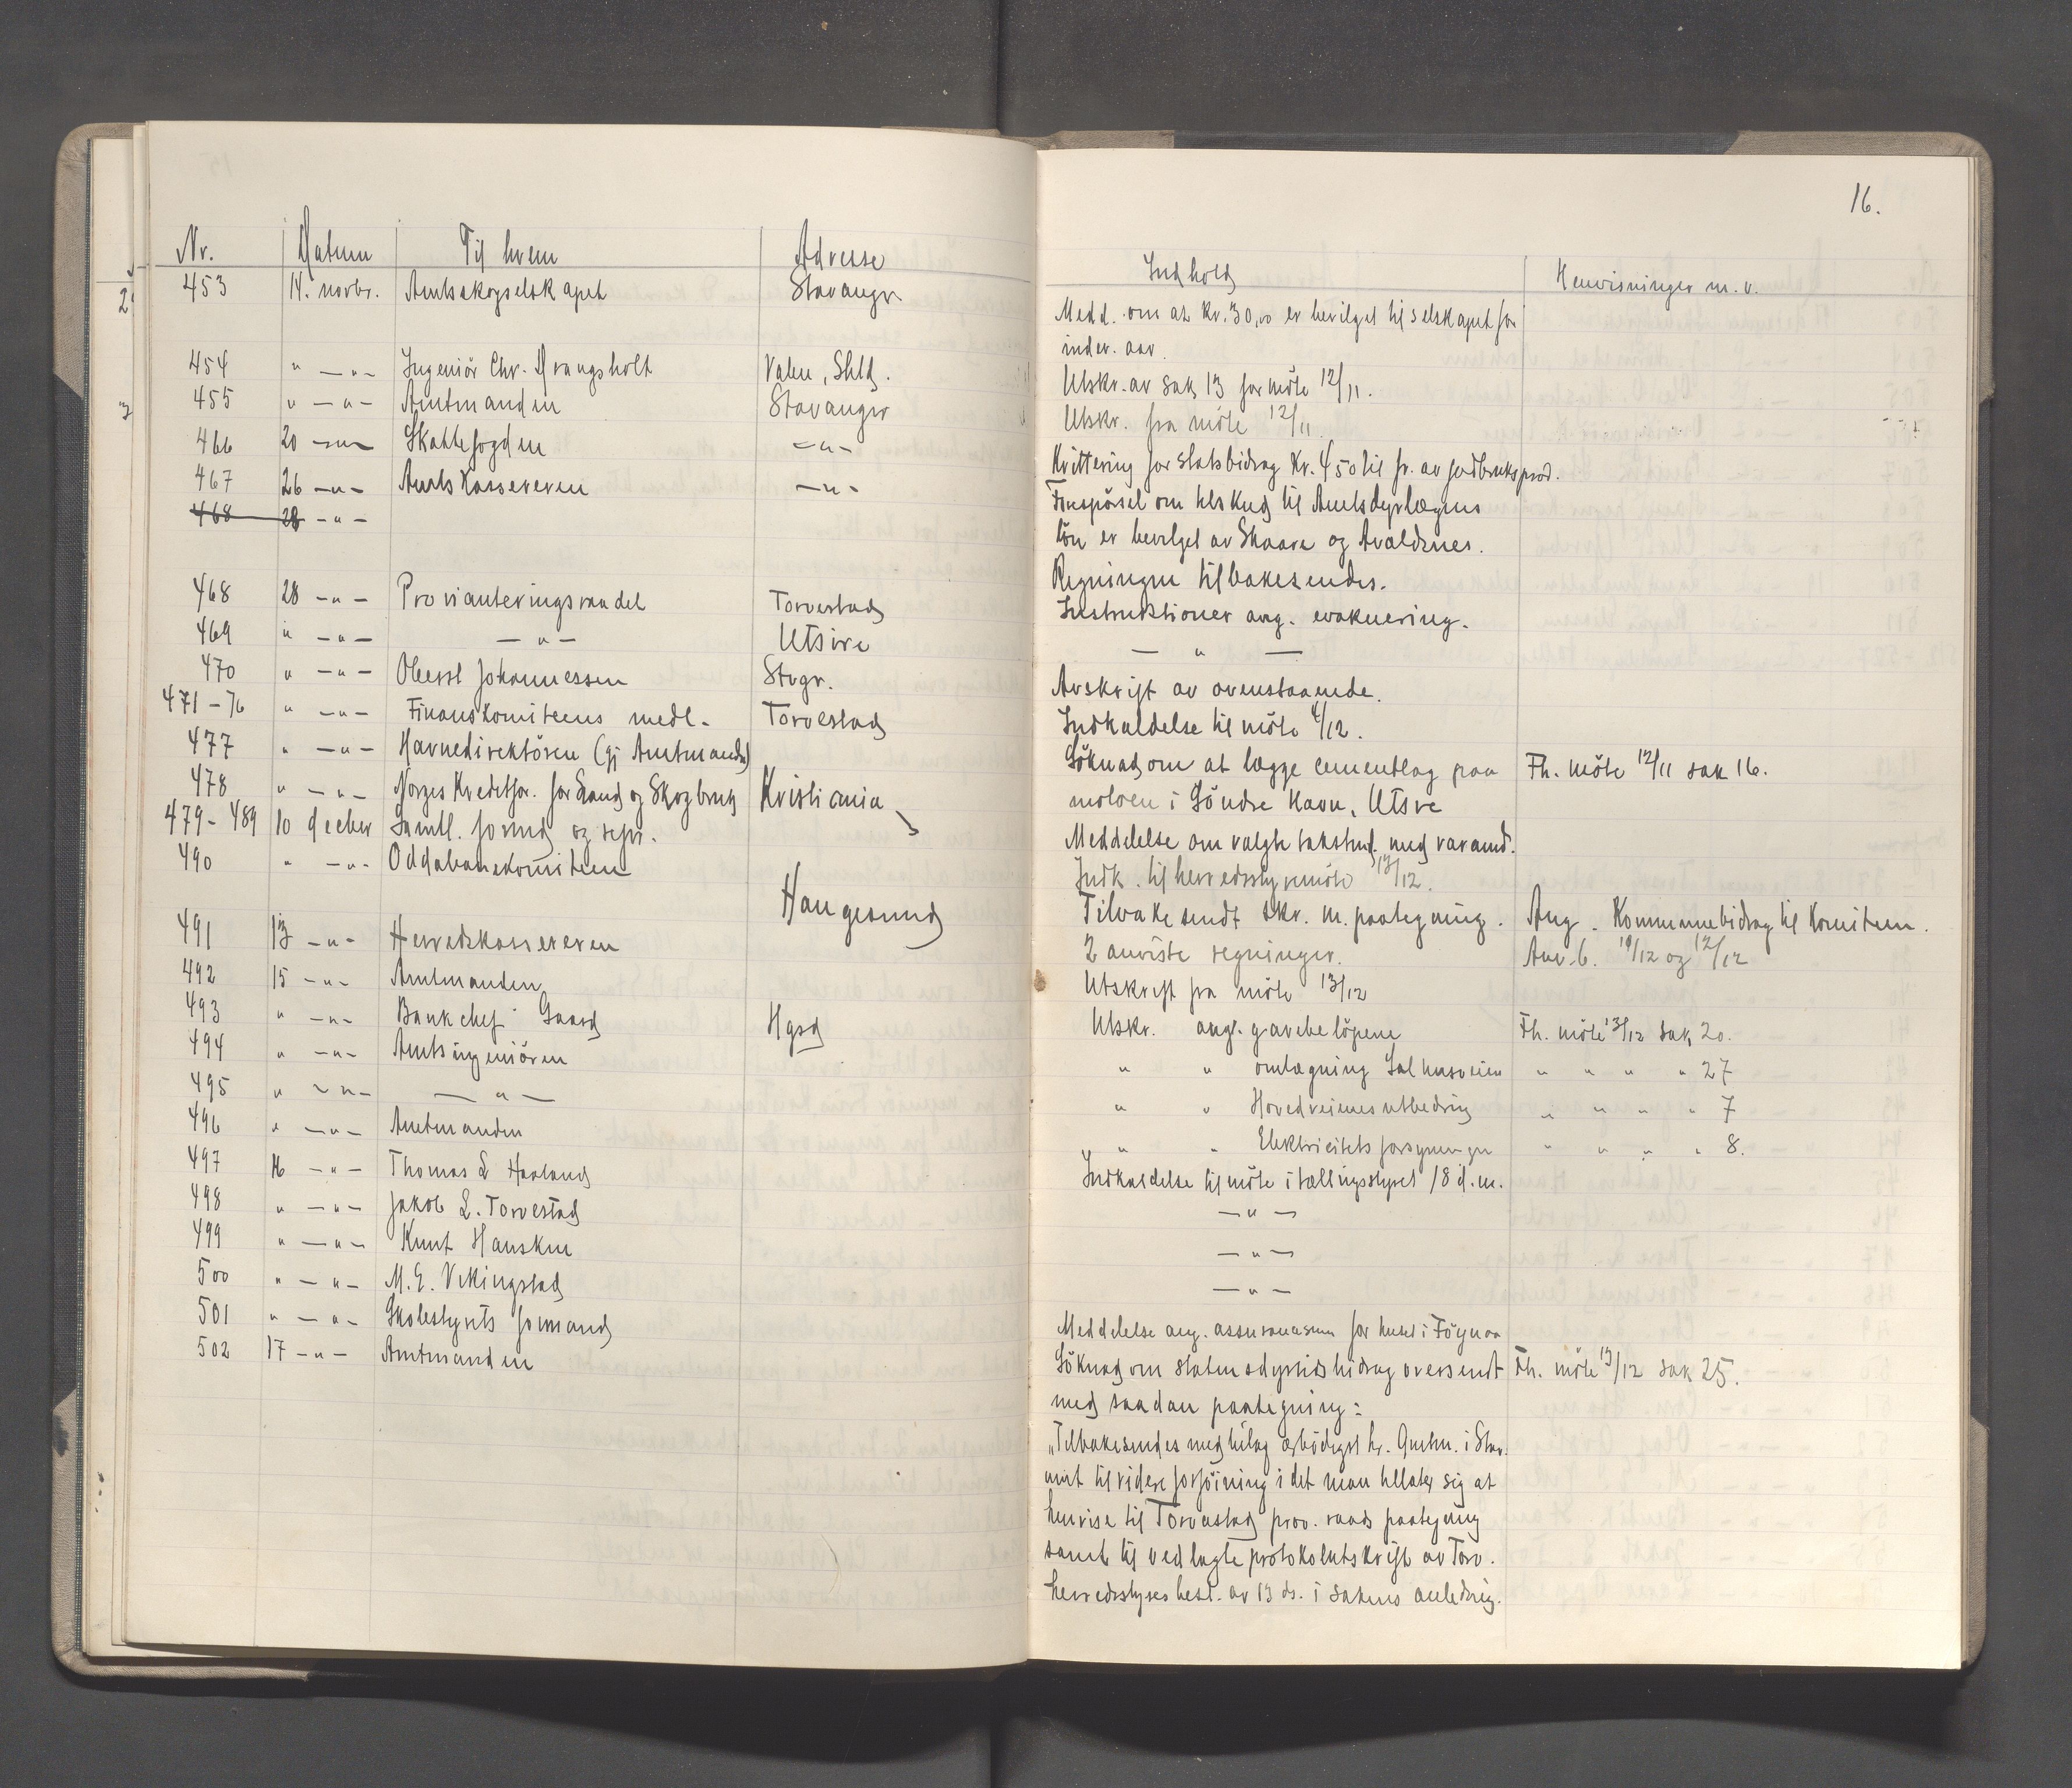 16.
Nr. Datum Til hvem Adresse
453 14. novbr. Amtsskogselskapet Stavanger
454 " — " — Ingeniör Chr. Drangsholt Valen, Shld.
455 " — " — Amtmanden Stavanger
466 20 — " — Skattefogden — " —
467 26 — " — Amtskassereren — " —
468 28 — " —
468 28 — " — Provianteringsraadet Torvestad
469 " — " — — " — Utsire
470 " — " — Oberstl Johannessen Stvgr.
471 - 76 " — " — Finanskomiteens medl. Torvestad
477 " — " — Havnedirektören (gj Amtmanden)
478 " — " — Norges Kreditfor. for Land og Skogbruk Kristiania
479 - 489 10 decbr Samtl. formd og repr.
490 " — " — Oddabanekomiteen
Haugesund
491 13 — " — Herredskassereren
492 15 — " — Amtmanden
493 " — " — Bankchef Gaard Hgsd
494 " — " — Amtsingeniören
495 " — " — — " —
496 " — " — Amtmanden
497 16 — " — Thomas L Haaland
498 " — " — Jakob L. Torvestad
499 " — " — Knut Hansken
500 " — " — M. E. Vikingstad
501 " — " — Skolestyrets formand
502 17 — " — Amtmanden
Indhold Henvisninger m. v.
Medd. om at kr. 30,00 er bevilget til selskapet for
inder. aar.
Utskr. av sak 13 for möte 12/11.
Utskr. fra möte 12/11.
Kvittering for statsbidrag kr. 450 til fr. av jordbruksprod.
Forespörsel om tilskud til Amtsdyrlægens
lön er bevilget av Skaare og Avaldsnes.
Regningen tilbakesendes.
Instruktioner ang. evakuering.
— " —
Avskrift av ovenstaaende.
Indkaldelse til möte 4/12.
Söknad om at lægge cementlag paa Fh. möte 12/11 sak 16.
moloen i Söndre Havn, Utsire
Meddelelse om valgte takstmd. med varamd.
Indk. til herredsstyremöte 13/12.
Tilbakesendt skr. m. paategning. Ang. Kommunebidrag til Komiteen.
2 anviste regninger. Anv. b. 10/12 og 12/12
Utskrift fra möte 13/12
Utskr. ang. gavebelöpene Fh. möte 13/12 sak 20.
" " omlægning Salhusveien " " " " 27
" " Hovedveienes utbedring " " " " 7
" " Elektricitetsforsyningen " " " " 8.
Indkaldelse til möte i tællingsstyret 18 d. m.
— " —
— " —
— " —
Meddelelse ang. assuransen for huset i Föynaa
Söknad om statens dyrtidsbidrag oversendt Fh. möte 13/12 sak 25.
med saadan paategning:
"Tilbakesendes med bilag ærbödigst hr. Amtm. i Stav.
amt til videre forföining idet man tillater sig at
henvise til Torvestad prov. raads paategning
samt til vedlagte protokolutskrift av Torv.
herredsstyres besl. av 13 ds. i sakens anledning.